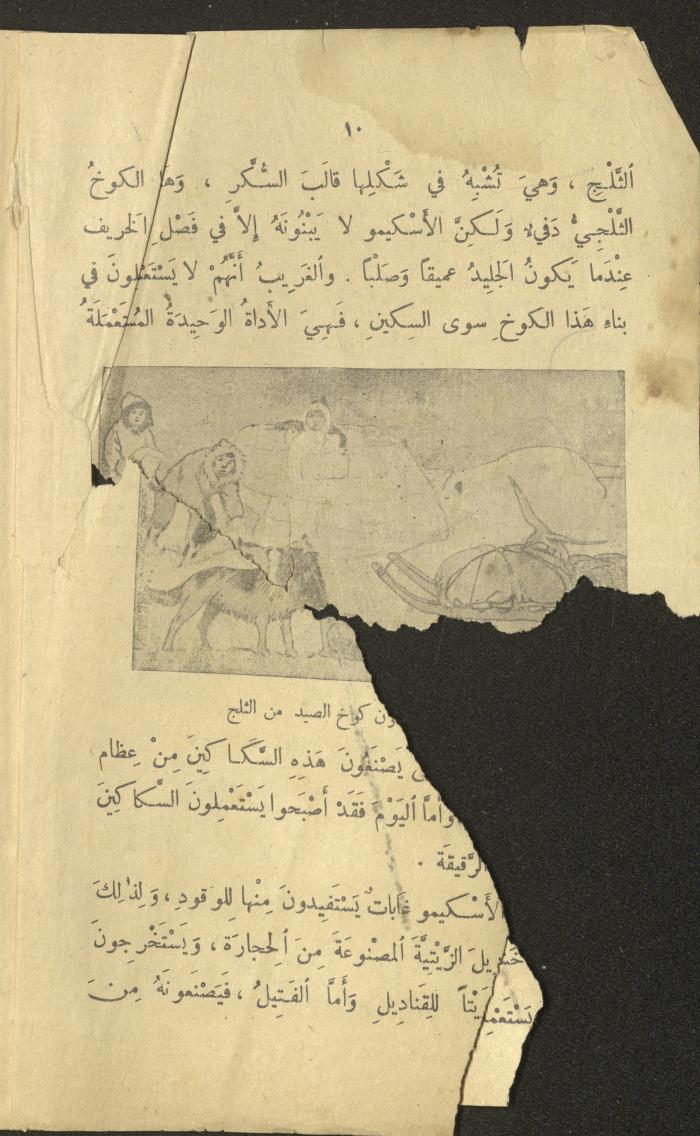 ١٠
ٱلثَّلْجِ ، وَهيَ تُشْبِهُ في شَكْلِها قالَبَ السُّكَّرِ ، وَهَا الكوخُ
الثَّلْجِيُّ دَفيءٌ وَلَـكِنَّ الأَسْكيمو لا يَبْنُونَهُ إِلاَّ في فَصْلِ الخريف
عِنْدَما يَكونُ الجَليدُ عميقاً وَصَلْباً . وٱلغَريبُ أَنَّهُمْ لا يَسْتَعْمِلونَ في
بناءِ هَذا الكوخِ سوى السِكينِ ، فَهِيَ الأَداةُ الوَحيدَةُ المُسْتَعْمَلَةُ
كوخ الصيد من الثلج
يَصْنَعُونَ هَذِهِ السَّكَاكينَ مِنْ عِظام
وأَمَّا ٱليَوْمَ فَقَدْ أَصْبَحوا يَسْتَعْمِلونَ السَّكاكينَ
الرَّقيقَةَ .
الأَسْكيمو غَاباتٌ يَسْتَفِيدونَ مِنْها لِلوَقودِ ، وَلِذٰلِكَ
الزَّيْتِيَّةَ ٱلمصْنوعَةَ مِنَ ٱلحِجارَة ، وَيَسْتَخْرِجونَ
لِلقَناديلِ وَأَمَّا ٱلفَتيلُ ، فَيَصْنَعونَهُ مِنَ